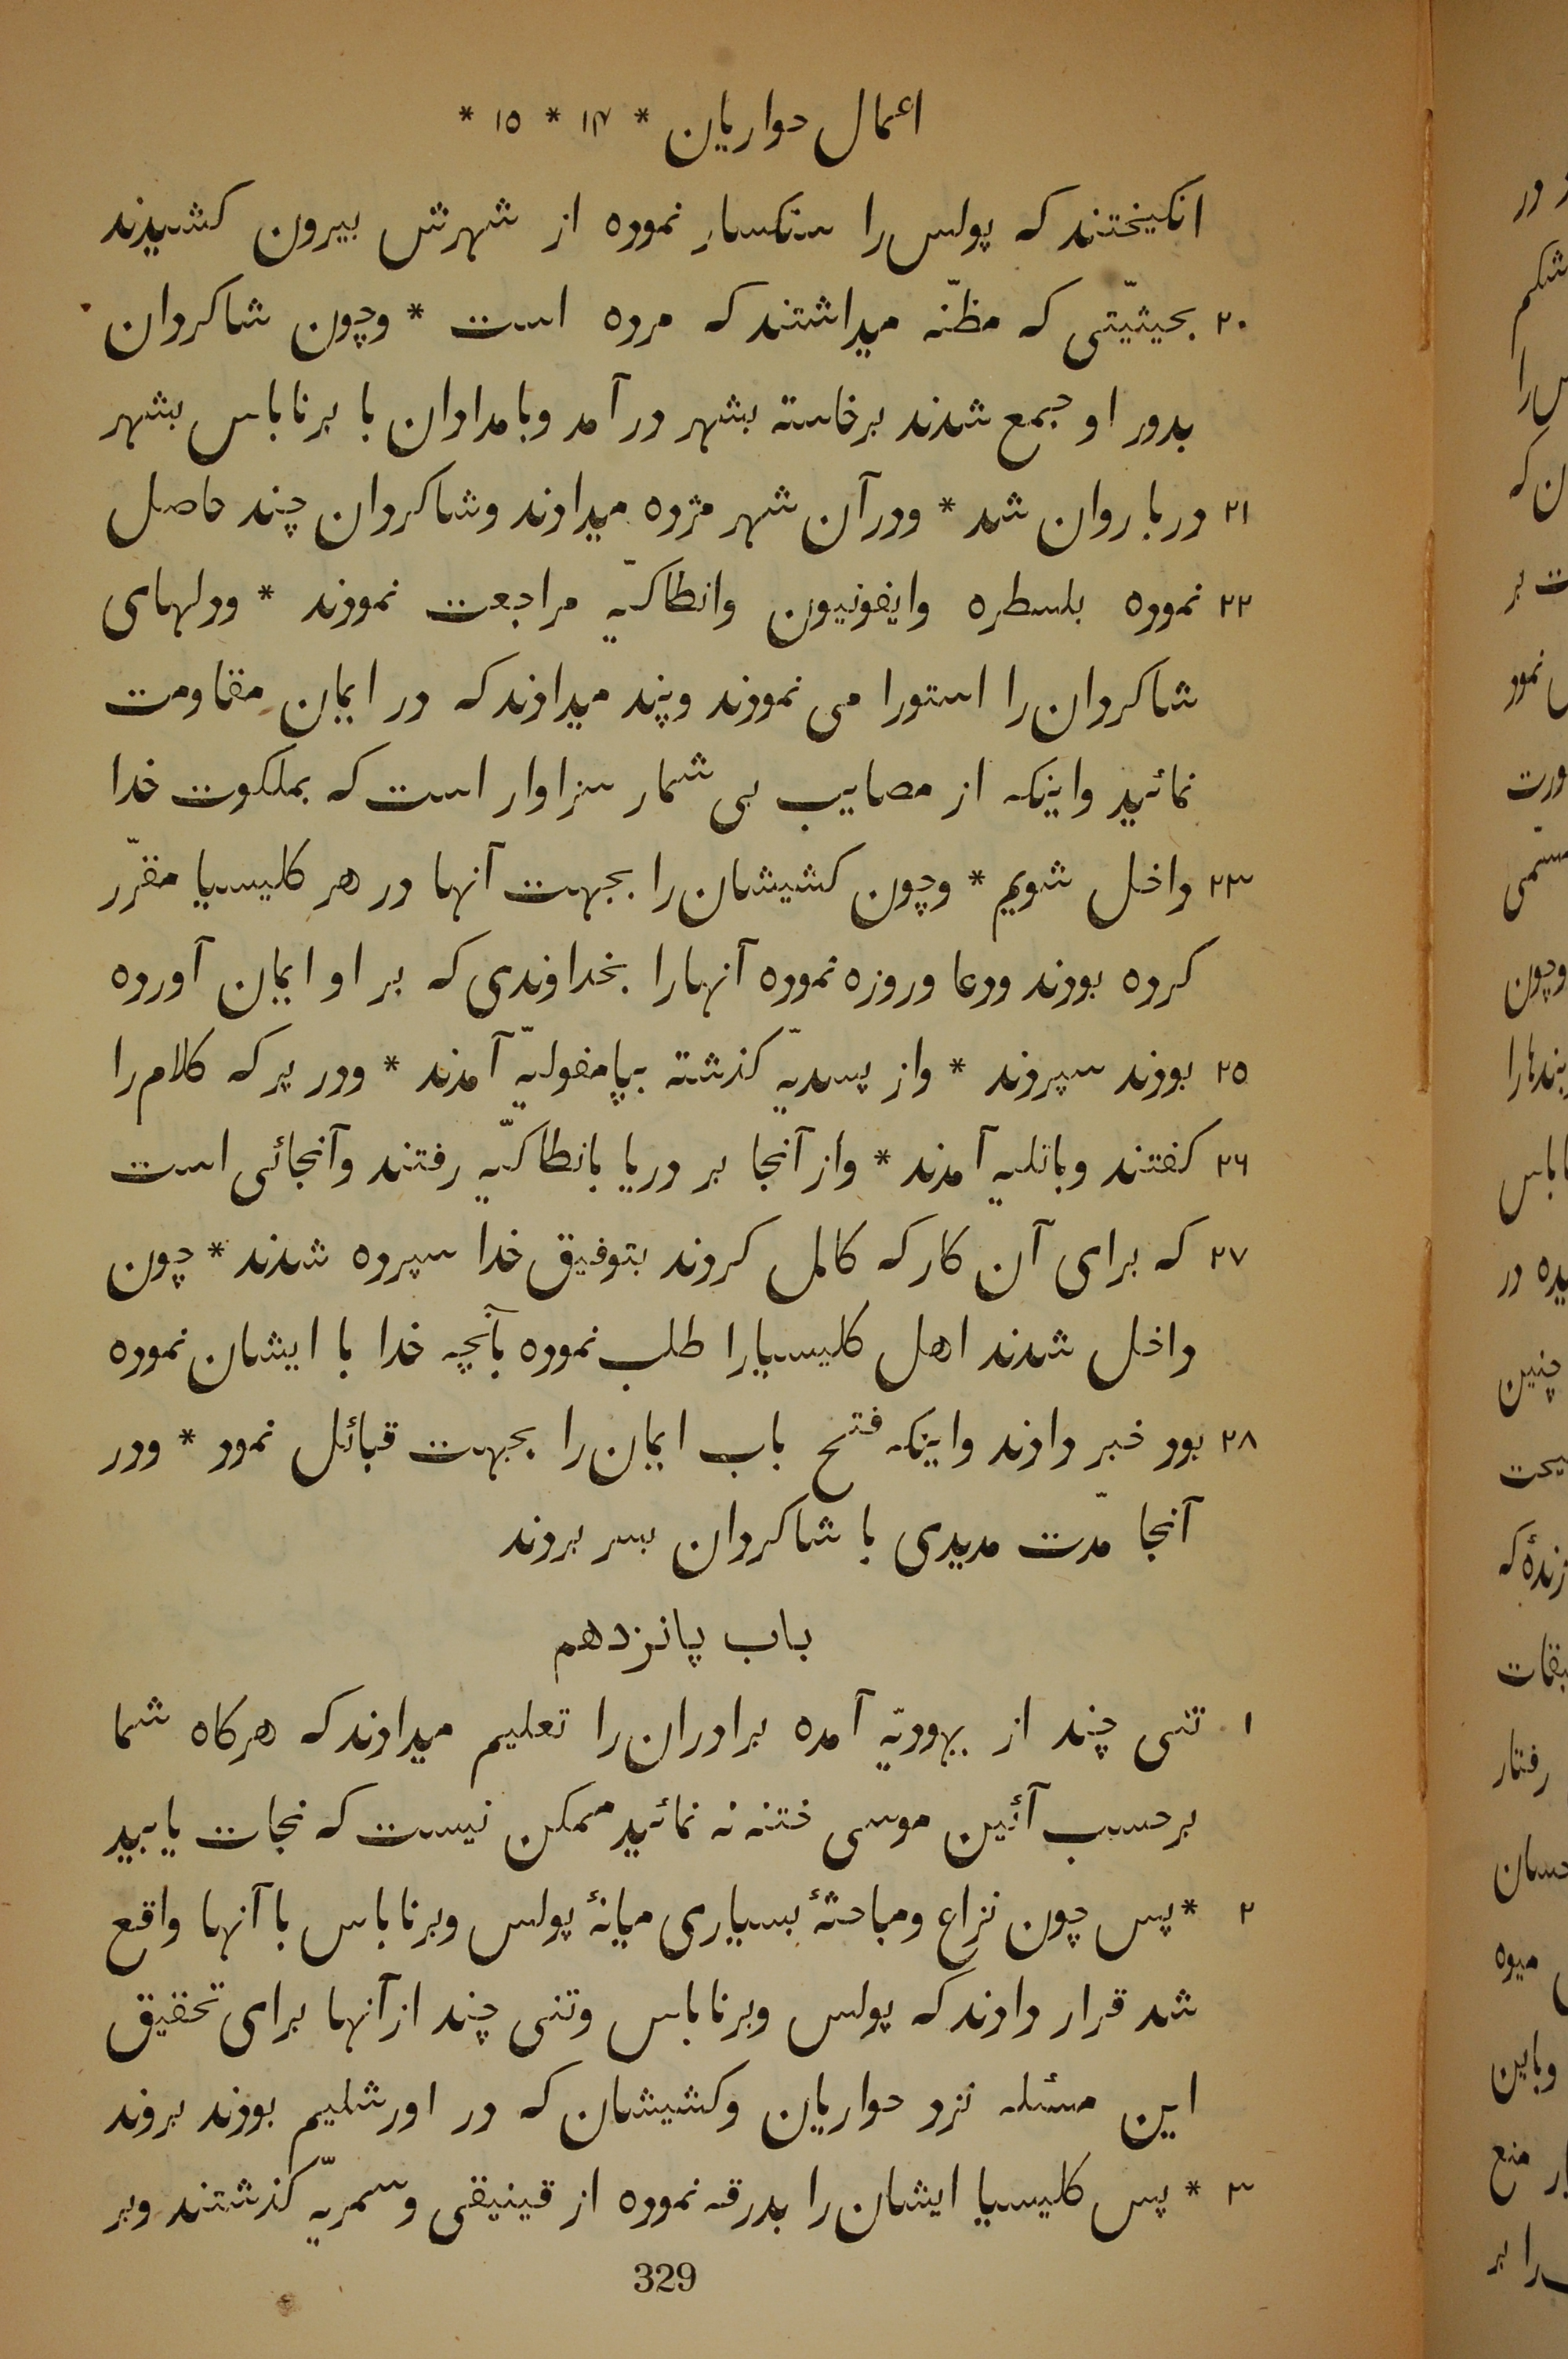 اعمال حواریان * ۱۴ * ۱۵ *
انکیختند که پولس را سنکسار نموده از شهرش بیرون کشیدند
۲۰ بحیثیّتی که مظنّه میداشتند که مرده است * وچون شاکردان
بدور او جمع شدند برخاسته بشهر در آمد وبامدادان با برناباس بشهر
۲۱ دربا روان شد * ودر آن شهر مژده میدادند وشاکردان چند حاصل
۲۲ نموده بلسطره وایقونیون وانطاکیّه مراجعت نمودند * ودلهای
شاکردان را استورا می نمودند وپند میدادند که در ایمان مقاومت
نمائید واینکه از مصایب بی شمار سزاوار است که بملکوت خدا
۲۳ داخل شویم * وچون کشیشان را بجهت آنها در هر کلیسیا مقرّر
کرده بودند ودعا وروزه نموده آنها را بخداوندی که بر او ایمان آورده
۲۵ بودند سپردند * واز پسدیّه کذشته بپامفولیّه آمدند * ودر پر که کلام را
۲۶ کفتند وباتلیه آمدند * واز آنجا بر دریا بانطاکیّه رفتند وآنجائی است
۲۷ که برای آن کار که کامل کردند بتوفیق خدا سپرده شدند * چون
داخل شدند اهل کلیسیا را طلب نموده بآنچه خدا با ایشان نموده
۲۸ بود خبر دادند واینکه فتح باب ایمان را بجهت قبائل نمود * ودر
آنجا مدّت مدیدی با شاکردان بسر بردند
باب پانزدهم
۱ تنی چند از یهودیّه آمده برادران را تعلیم میدادند که هرکاه شما
برحسب آئین موسی ختنه نه نمائید ممکن نیست که نجات یابید
۲ * پس چون نزاع ومباحثهٔ بسیاری میانهٔ پولس وبرناباس با آنها واقع
شد قرار دادند که پولس وبرناباس وتنی چند از آنها برای تحقیق
این مسئله نزد حواریان وکشیشان که در اورشلیم بودند بروند
۳ * پس کلیسیا ایشان را بدرقه نموده از قینیقی وسمریّه کذشتند وبر
329